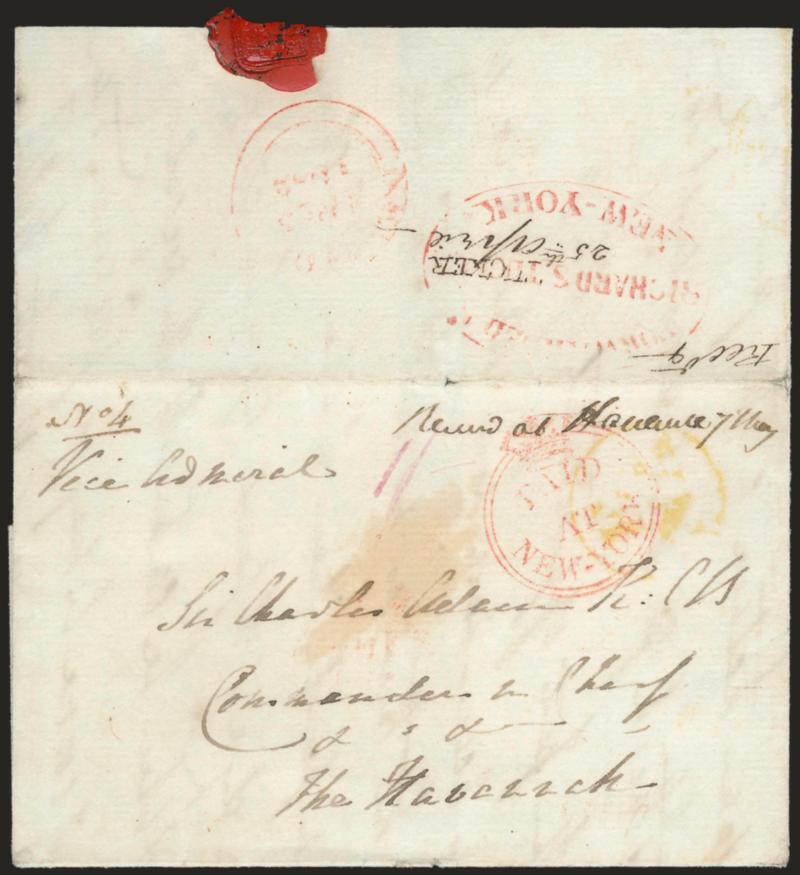 NEW-YORK
25th April
RICHARD S. TUCKER
Rec'd 9
No 4
Recived at Havana 7 May
Vice Admiral
PAID
AT
NEW-YORK
Sir Charles Adam K: C B
Commander in Chief
& s &
The Havannah